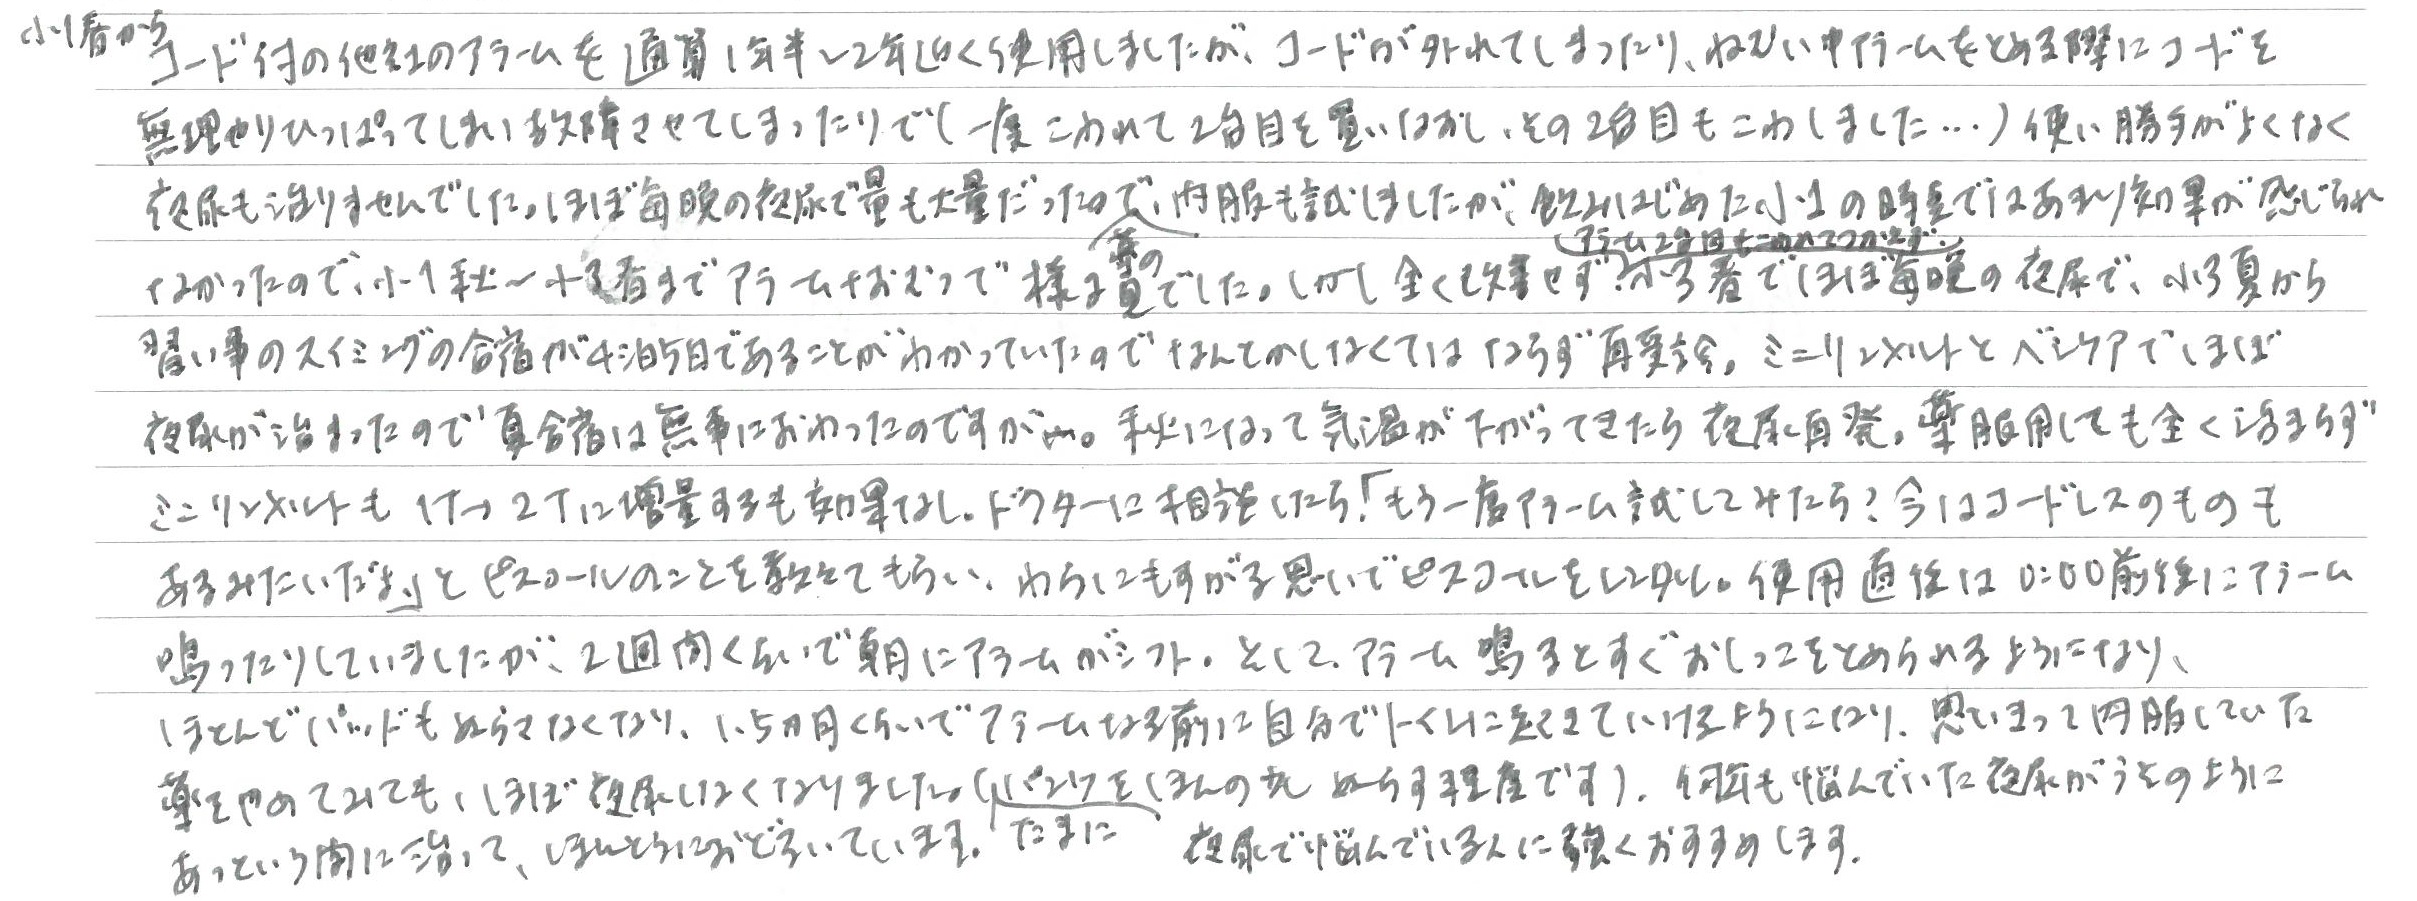 小1春から
コード付の他社のアラームを通算1年半~2年近く使用しましたが、コードが外れてしまったり、ねむい中アラームをとめる際にコードを
無理やりひっぱってしまい故障させてしまったりで(一度こわれて2台目を買いなおし、その2台目もこわしました…)使い勝手がよくなく
夜尿も治りませんでした。ほぼ毎晩の夜尿で量も大量だったので、内服も試しましたが、飲みはじめた小1の時点ではあまり効果が感じられ
なかったので、小1秋~小3春までアラームなおむつで様子見でした。しかし全く改善せず小3春でほぼ毎晩の夜尿で、小3夏から
薬の
アラーム2台目もこわれてつかえず、
習い事のスイミングの合宿が4泊5日であることがわかっていたのでなんとかしなくてはならず再受診。ミニリンメルトとベシケアでほぼ
夜尿が治まったので夏合宿は無事におわったのですが…。秋になって気温が下がってきたら夜尿再発。薬服用しても全く治まらず
ミニリンメルトも1T→2Tに増量するも効果なし。ドクターに相談したら「もう一度アラーム試してみたら?今はコードレスのものも
あるみたいだよ」とピスコールのことを教えてもらい、わらにもすがる思いでピスコールをレンタル。使用直後は0:00前後にアラーム
鳴ったりしていましたが、2週間くらいで朝にアラームがシフト。そして、アラーム鳴るとすぐおしっこをとめられるようになり、
ほとんどパッドもぬらさなくなり、1.5ヵ月くらいでアラームなる前に自分でトイレに起きていけるようになり、思いきって内服していた
薬をやめてみても、ほぼ夜尿しなくなりました。(パンツをほんの少しぬらす程度です)。何年も悩んでいた夜尿がうそのように
たまに
あっという間に治って、ほんとうにおどろいています。夜尿で悩んでいる人に強くおすすめします。